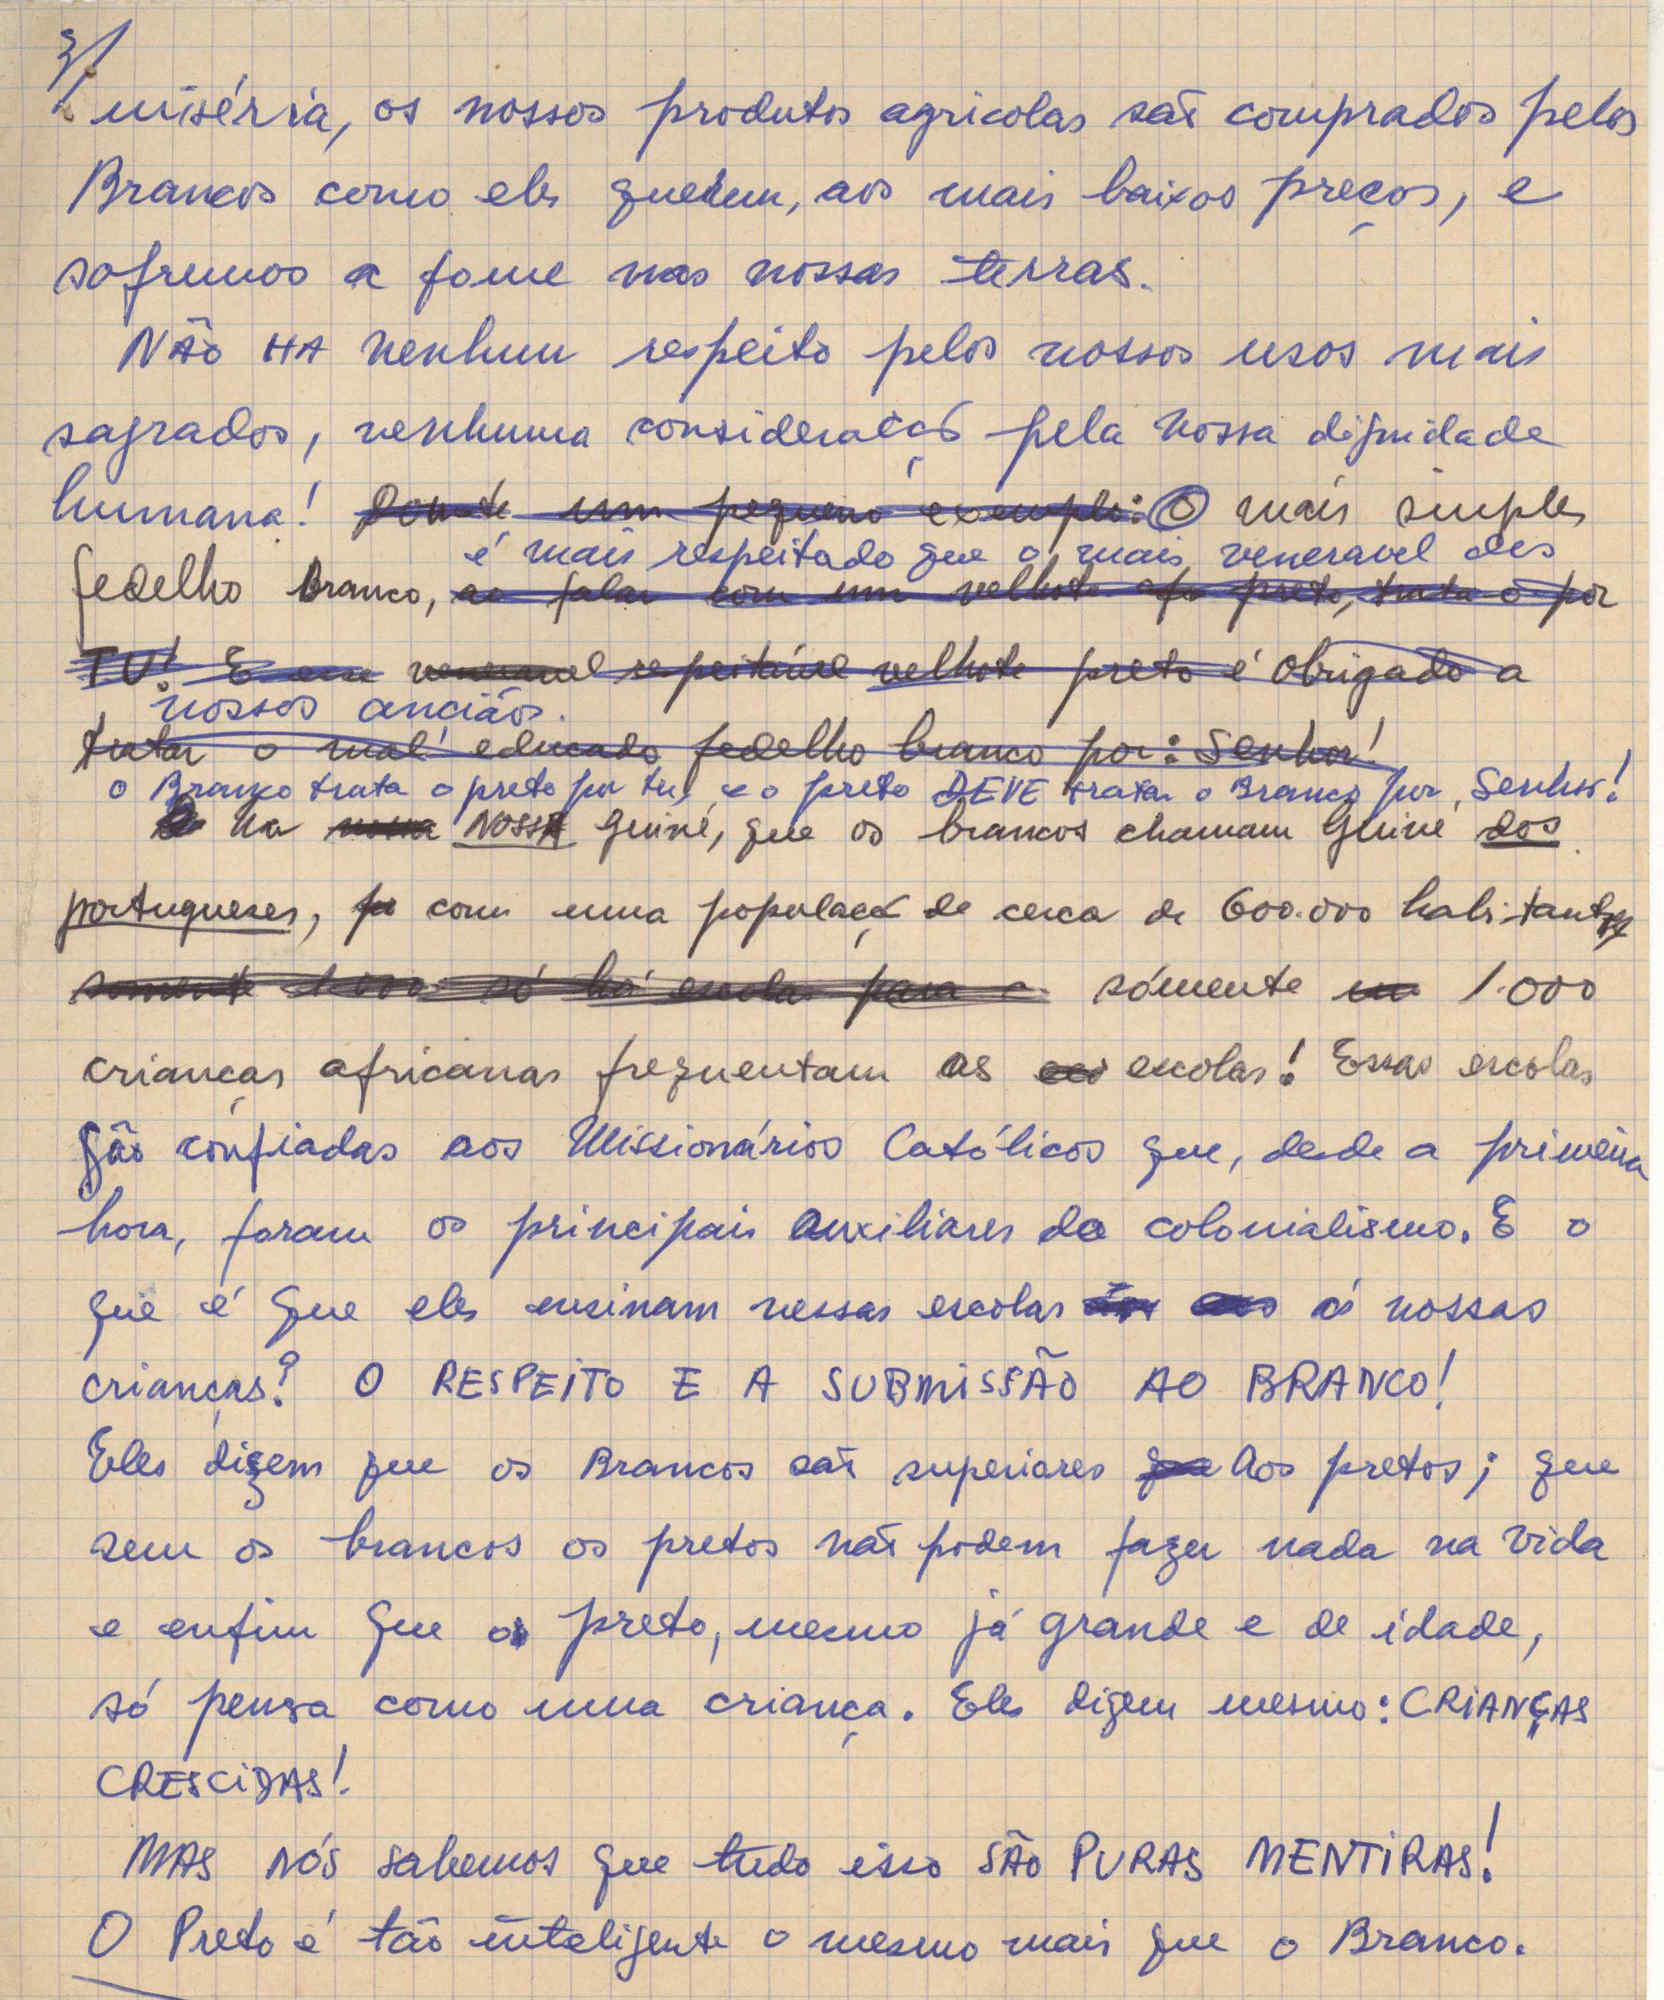 3/
miséria, os nossos produtos agricolas são comprados pelos
Brancos como eles querem, aos mais baixos preços, e
sofremos a fome nas nossas terras.
NÃO HA nenhum respeito pelos nossos usos mais
sagrados, nenhuma consideração pela nossa dignidade
humana! um pequeno exemplo: O mais simples
é mais respeitado que o mais veneravel dos
fedelho branco, ao falar com um velhote preto, trata o por
TU! E esse respeitável velhote preto é obrigado a
nossos anciãos.
tratar o mal educado fedelho branco por: Senhor!
o Branco trata o preto por tu, e o preto DEVE tratar o Branco por, Senhor!
Na nossa NOSSA Guiné, que os brancos chamam Guiné dos
portugueses, com uma população de cerca de 600.000 habitantes
somente 1.000 só há escolas para sómente 1.000
crianças africanas frequentam as escolas! Essas escolas
são confiadas aos Missionários Católicos que, desde a primeira
hora, foram os principais auxiliares do colonialismo. E o
que é que eles ensinam nessas escolas ás nossas
crianças? O RESPEITO E A SUBMISSÃO AO BRANCO!
Eles dizem que os Brancos são superiores que aos pretos; que
sem os brancos os pretos não podem fazer nada na vida
e enfim que o preto, mesmo já grande e de idade,
só pensa como uma criança. Eles dizem mesmo: CRIANÇAS
CRESCIDAS!
MAS NÓS sabemos que tudo isso SÃO PURAS MENTIRAS!
O Preto é tão inteligente o mesmo mais que o Branco.